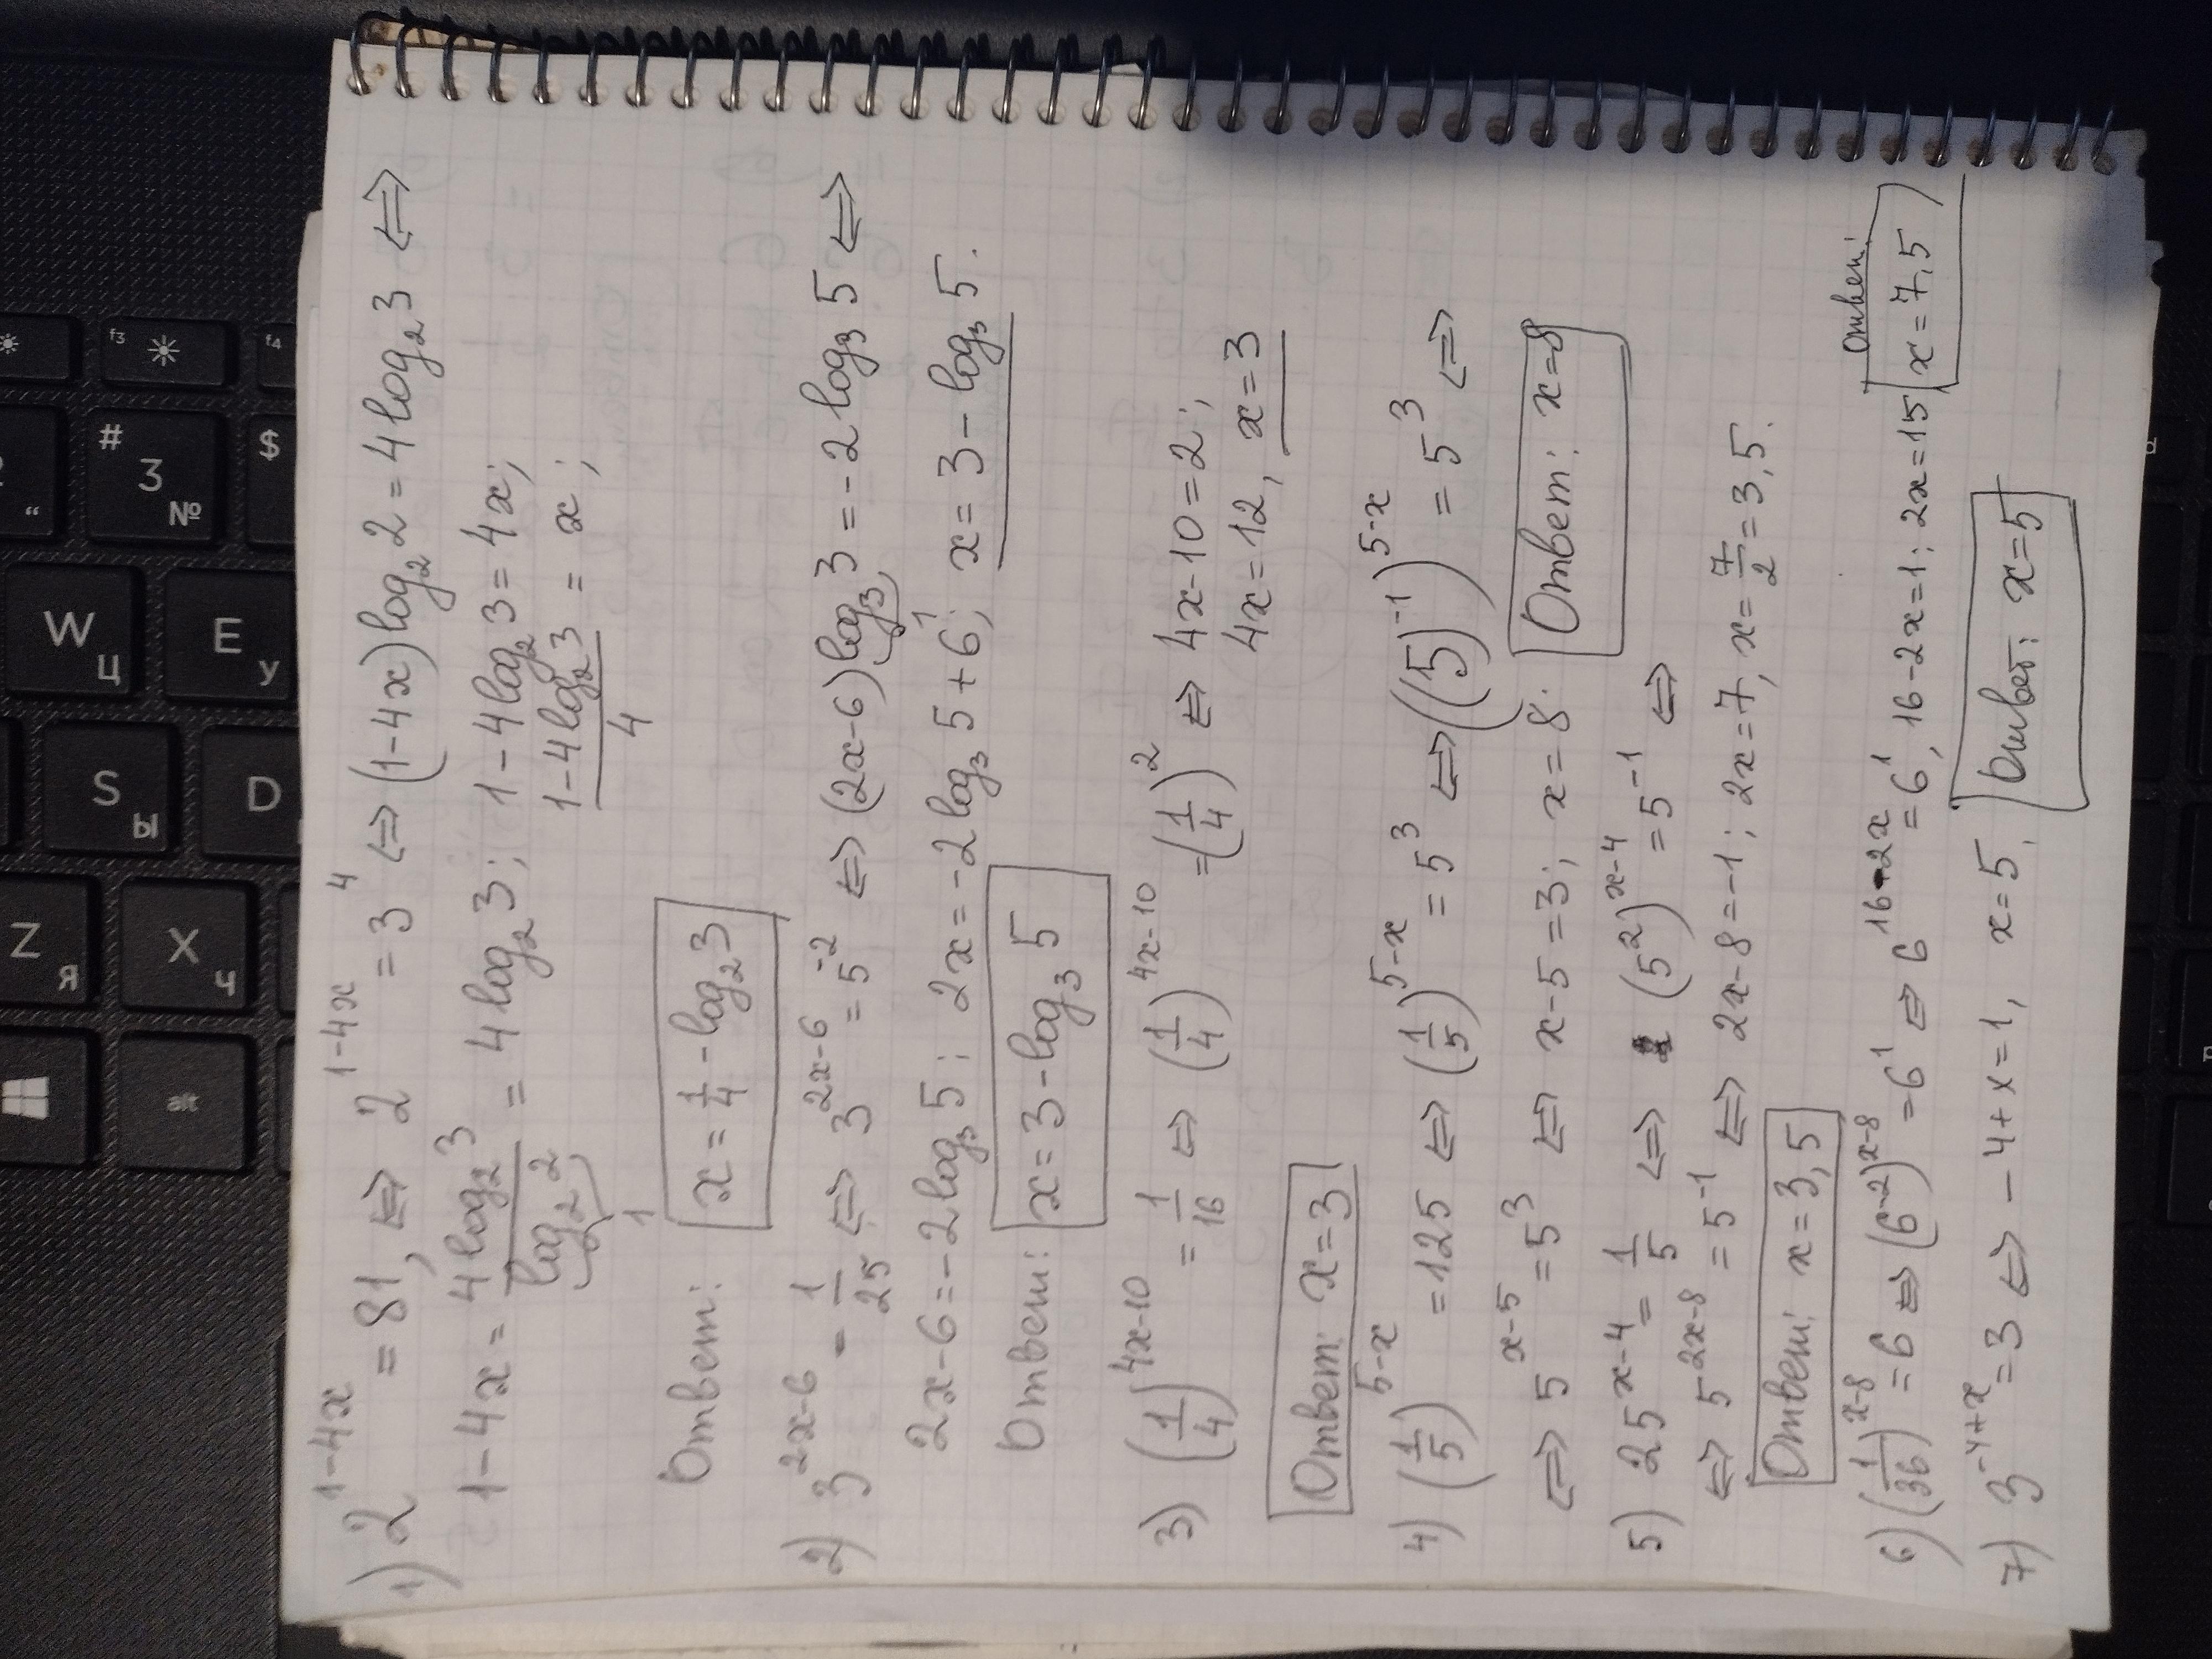 1) 2^{1-4x} = 81, ⇔ 2^{1-4x} = 3^4 ⇔ (1-4x)log_2 2 = 4log_2 3 ⇔
1-4x = \frac{4log_2 3}{log_2 2} = 4log_2 3; 1-4log_2 3 = 4x;
1
\frac{1-4log_2 3}{4} = x;
Ответ: x = \frac{1}{4} - log_2 3
2) 3^{2x-6} = \frac{1}{25} ⇔ 3^{2x-6} = 5^{-2} ⇔ (2x-6)log_3 3 = -2log_3 5 ⇔
1
2x-6 = -2log_3 5; 2x = -2log_3 5 + 6; x = 3 - log_3 5.
Ответ: x = 3 - log_3 5
3) (\frac{1}{4})^{4x-10} = \frac{1}{16} ⇔ (\frac{1}{4})^{4x-10} = (\frac{1}{4})^2 ⇔ 4x-10 = 2;
4x = 12, x = 3
Ответ: x = 3
4) (\frac{1}{5})^{5-x} = 125 ⇔ (\frac{1}{5})^{5-x} = 5^3 ⇔ ((5)^{-1})^{5-x} = 5^3 ⇔
⇔ 5^{x-5} = 5^3 ⇔ x-5 = 3; x = 8. Ответ: x = 8
5) 25^{x-4} = \frac{1}{5} ⇔ (5^2)^{x-4} = 5^{-1} ⇔
⇔ 5^{2x-8} = 5^{-1} ⇔ 2x-8 = -1; 2x = 7, x = \frac{7}{2} = 3,5.
Ответ: x = 3,5
6) (\frac{1}{36})^{x-8} = 6 ⇔ (6^{-2})^{x-8} = 6^1 ⇔ 6^{16-2x} = 6^1, 16-2x = 1; 2x = 15 Ответ: x = 7,5
7) 3^{-4+x} = 3 ⇔ -4+x = 1, x = 5. Ответ: x = 5
# 3 №
f3
f4
$
W Ц
E У
S Ы
D
Z Я
X Ч
alt